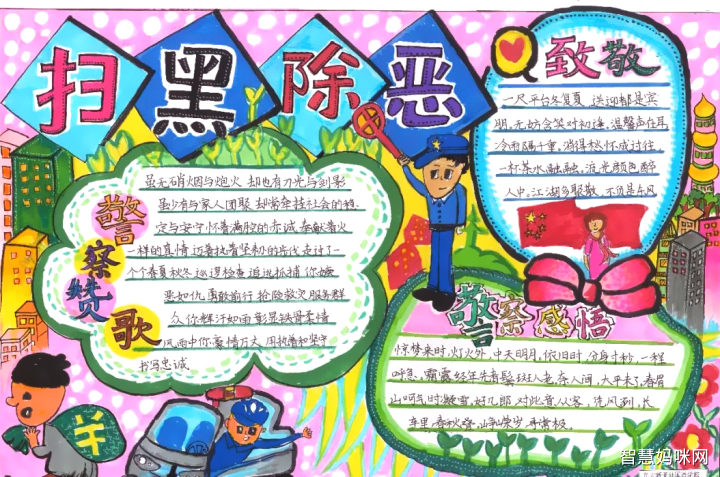 扫黑除恶
致敬
一尺平台冬复夏 送迎都是宾
朋,无妨含笑对初逢,温馨声在耳
冷雨隔千重,消得愁怀成过往
一杯茶水融融,波光颜色醉
人中,江湖多聚散,不负是东风
警察赞歌
虽无硝烟与炮火 却也有刀光与剑影
虽少有与家人团聚 却常牵挂社会的稳
定与安宁怀着满腔的赤诚 奉献着火
一样的真情 迈着执着坚韧的步伐 走过了一
个个春夏秋冬 巡逻检查 追逃抓捕 你嫉
恶如仇 勇敢前行 抢险救灾 服务群
众 你挥汗如雨 彰显铁骨柔情
风雨中你豪情万丈 用执着和坚守
书写忠诚
警察感悟
惊梦来时,灯火外,中天明月,依旧时,分身寸秒,一程
呼急,霜露经年先有鬓,班人老
人间,太平未了,春眉
山
时凝雪,好儿郎,对此音,从容,洗风冽,片
¥
智慧妈咪网